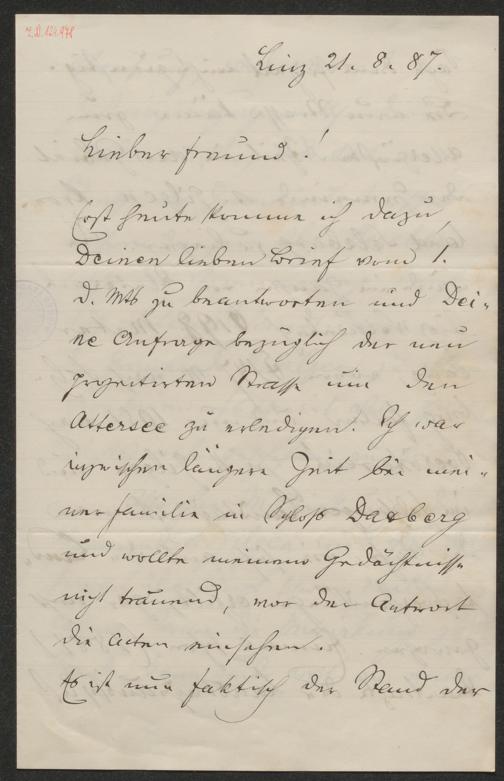 I.N. 121.978
Linz 21. 8. 87.
Lieber Freund!
Erst heute komme ich dazu,
Deinen lieben Brief vom 1.
d. Mts zu beantworten und Dei-
ne Anfrage bezüglich der neu
projectirten Strasse um den
Attersee zu erledigen. Ich war
inzwischen längere Zeit bei mei-
ner Familie in Schloß Daxberg
und wollte meinem Gedächtnisse
nicht trauend, vor der Antwort
die Acten einsehen.
Es ist nun faktisch der Stand der